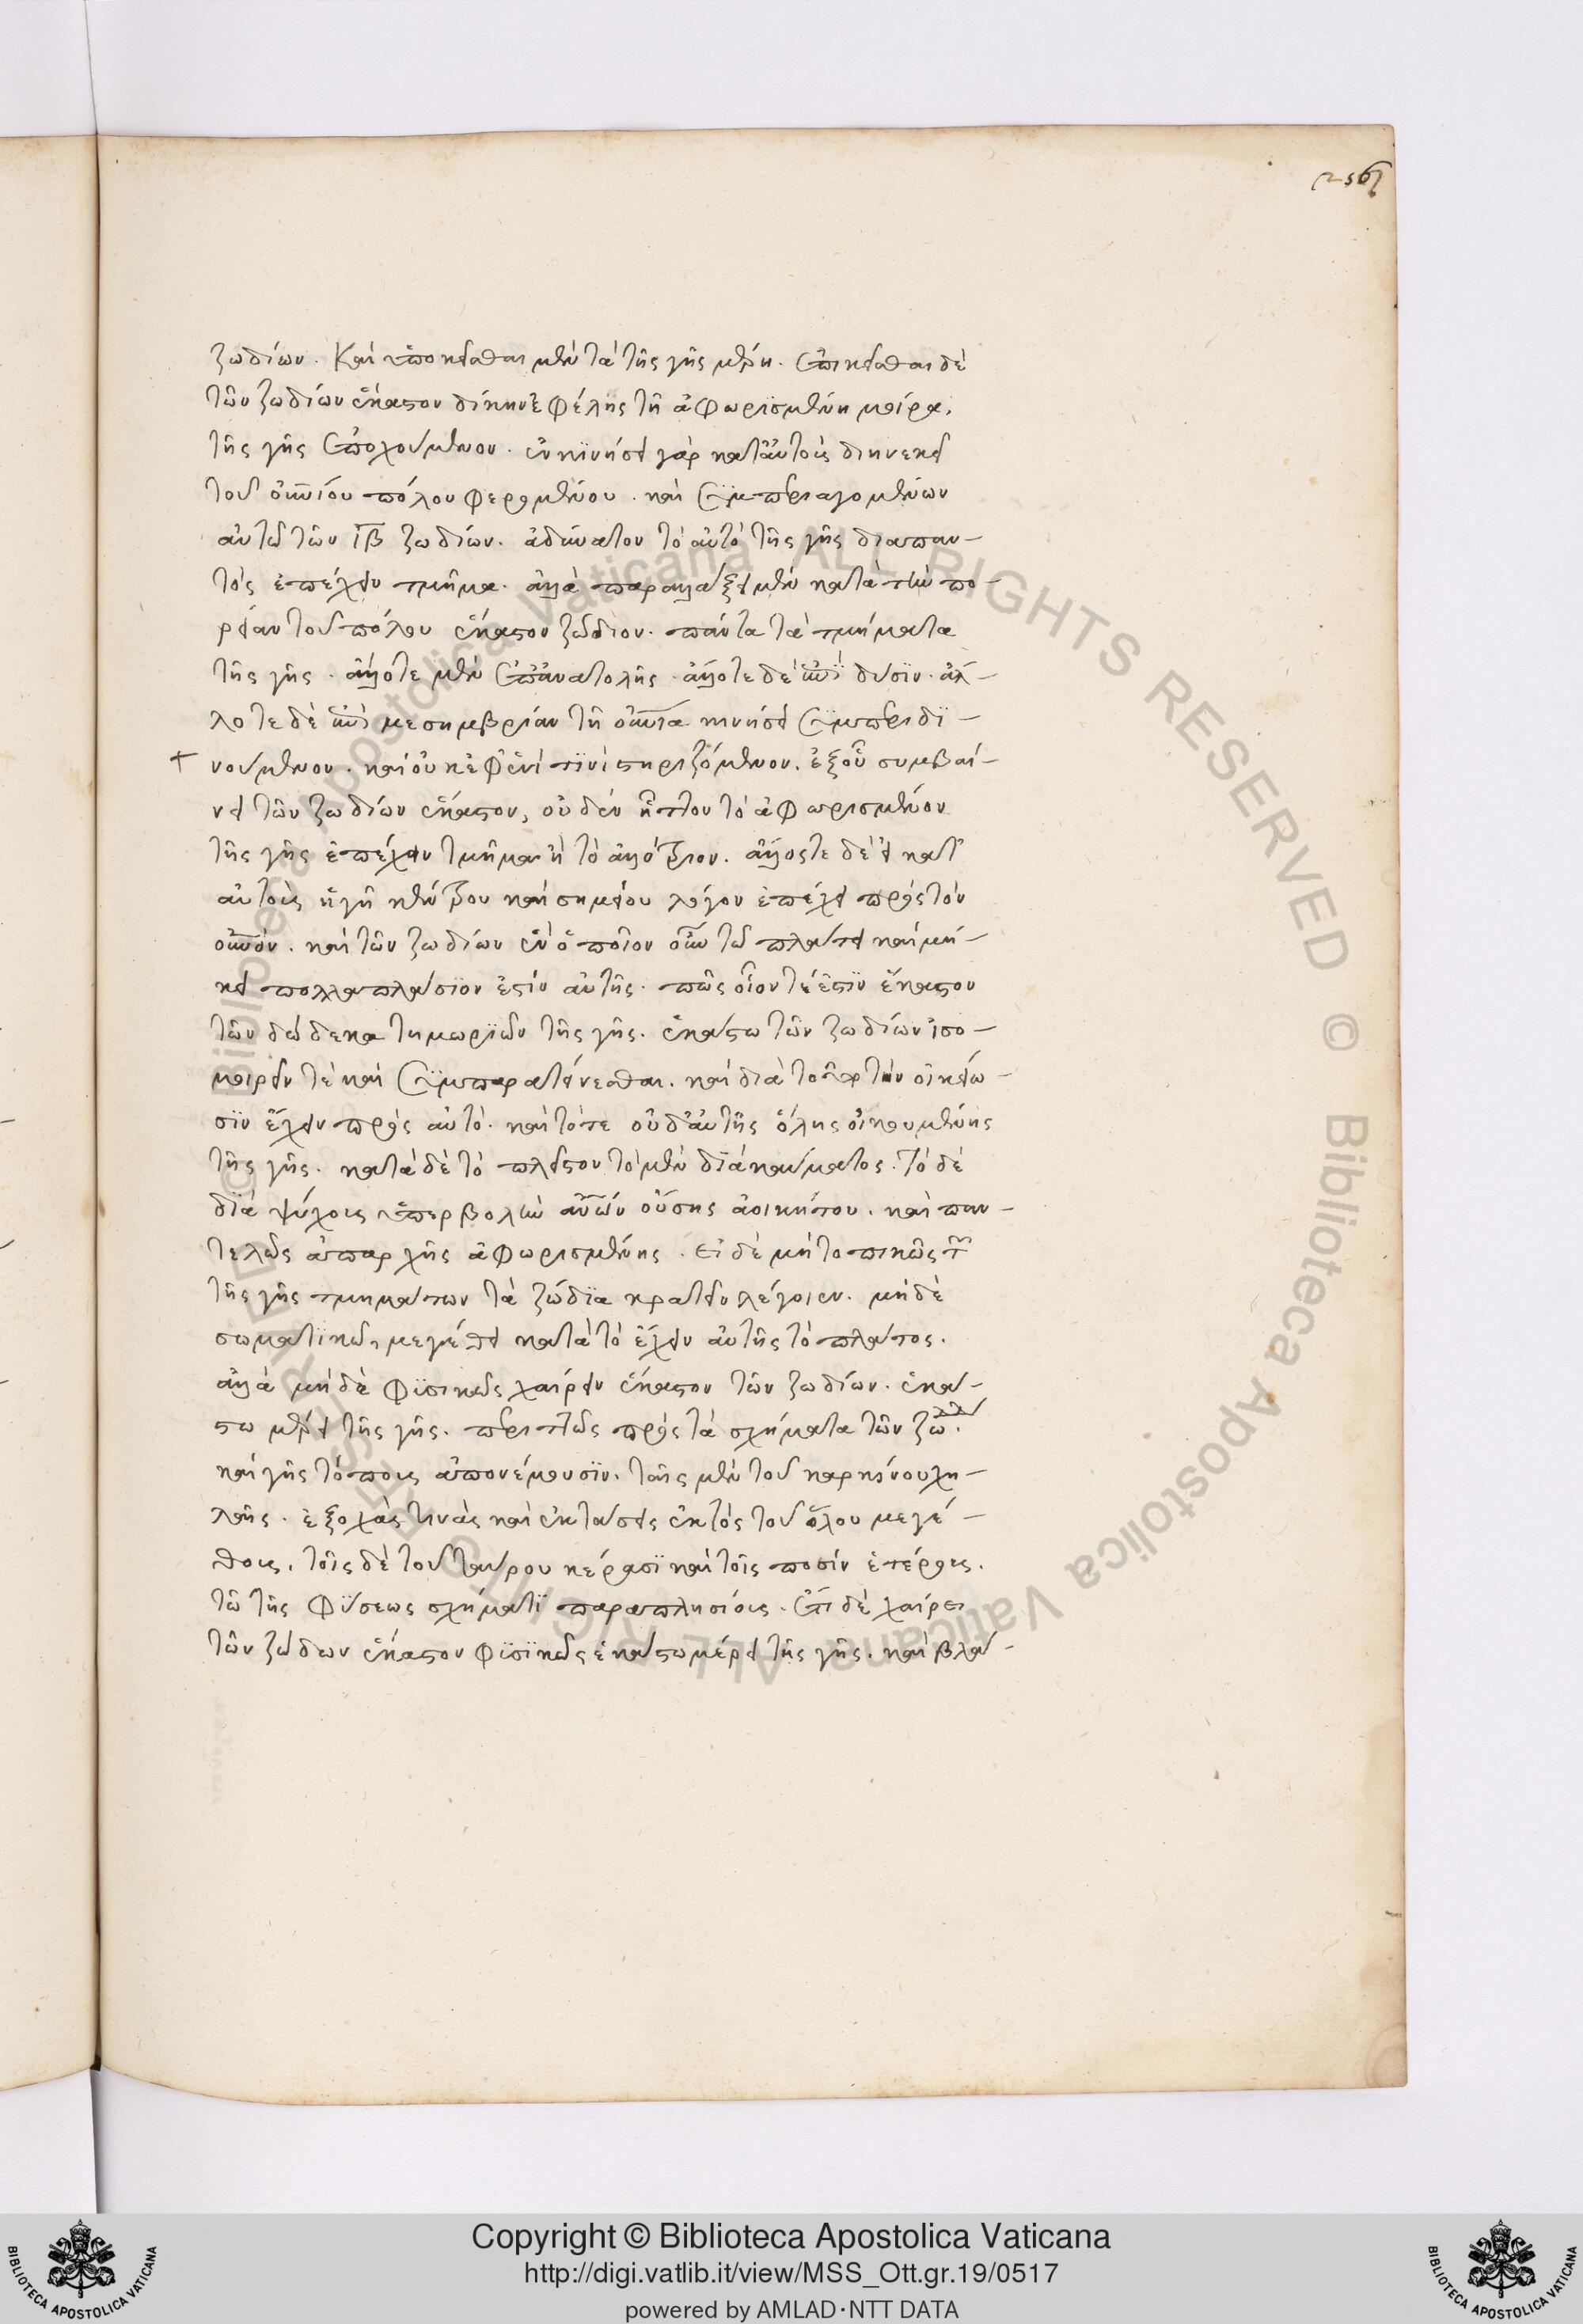 256
ζωδίων. Καὶ ὑποκεῖσθαι μὲν τὰ τῆς γῆς μέρη. ἐπικεῖσθαι δὲ
τῶν ζωδίων ἕκαστον δίκην ἐφέλης τῇ ἀφωρισμένῃ μοίρα.
τῆς γῆς ἐποχούμενον. ἐν κινήσει γὰρ κατ' αὐτοὺς διηνεκεῖ
τοῦ οὐνίου πόλου φερομένου. καὶ συμπεριαγομένων
αὐτῷ τῶν ιβ ζωδίων. ἀδύνατον τὸ αὐτὸ τῆς γῆς διαπαν-
τὸς ἐπέχειν τμῆμα. ἀλλὰ παραλλάξει μὲν κατὰ τὴν πο-
ρείαν τοῦ πόλου ἕκαστον ζώδιον. πάντα τὰ τμήματα
τῆς γῆς. ἄλλοτε μὲν ἐπ' ἀνατολῆς. ἄλλοτε δὲ ἐπὶ δύσιν. ἄλ-
λοτε δὲ ἐπὶ μεσημβρίαν τῇ οὐνία κινήσει συμπεριδι-
νούμενον. καὶ οὐκ ἐφ' ἑνί τινι στηριζόμενον. ἐξ οὗ συμβαί-
νει τῶν ζωδίων ἕκαστον, οὐδὲν ἧττον τὸ ἀφωρισμένον
τῆς γῆς ἐπέχειν τμῆμα ἢ τὸ ἀλλότριον. ἄλλοστε δὲ εἰ κατ'
αὐτοὺς ἡ γῆ κέντρου καὶ σημείου λόγον ἐπέχει πρὸς τὸν
οὐνόν. καὶ τῶν ζωδίων ἓν ὁποῖον οὖν τῷ πλάτει καὶ μή-
κει πολλαπλάσιον ἐστὶν αὐτῆς. πῶς οἷόν τέ ἐστιν ἕκαστον
τῶν δώδεκα τημωρίων τῆς γῆς. ἑκάστω τῶν ζωδίων ἰσο-
μοιρεῖν τὲ καὶ συμπαρατείνεσθαι. καὶ διὰ τοῦτο τὴν οἰκείω-
σιν ἔχειν πρὸς αὐτό. καὶ τότε οὐδ' αὐτῆς ὅλης οἰκουμένης
τῆς γῆς. κατὰ δὲ τὸ πλεῖστον τὸ μὲν διὰ καύματος. τὸ δὲ
διὰ ψύχους ὑπερβολὴν ἀνων οὔσης ἀοικήτου. καὶ παν-
τελῶς ἀπαρχῆς ἀφωρισμένης. Εἰ δὲ μὴ τοπικῶς τῶν
τῆς γῆς τμημάτων τὰ ζώδια κρατεῖν λέγοιεν. μηδὲ
σωματικῶ, μεγέθει κατὰ τὸ ἔχειν αὐτῆς τὸ πλάτος.
ἀλλὰ μηδὲ φυσικῶς χαίρειν ἕκαστον τῶν ζωδίων. ἑκά-
στω μέρει τῆς γῆς. περιττῶς πρὸς τὰ σχήματα τῶν ζώ.
καὶ γῆς τόπους ἀπονέμουσιν. ταῖς μὲν τοῦ καρκίνου χη-
λαῖς. ἐξοχάς τινὰς καὶ ἐκτάσεις ἐκτὸς τοῦ ὅλου μεγέ-
θους. τοῖς δὲ τοῦ ταύρου κέρασι καὶ τοῖς ποσὶν ἑτέροις.
τῶ τῆς φύσεως σχήματι παραπλησίοις. Ἔτι δὲ χαίρει
τῶν ζώδων ἕκαστον φυσικῶς ἑκάστω μέρει τῆς γῆς. καὶ βλα-
Copyright © Biblioteca Apostolica Vaticana
http://digi.vatlib.it/view/MSS_Ott.gr.19/0517
powered by AMLAD·NTT DATA